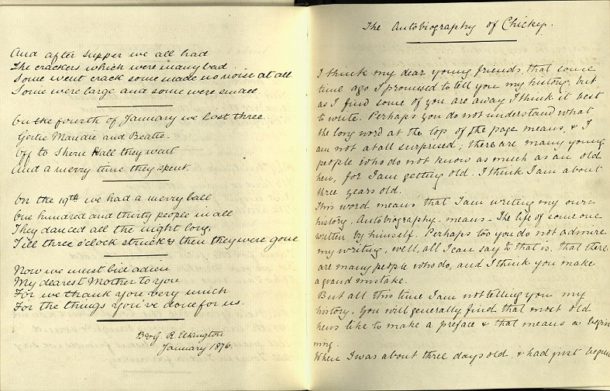 And after supper we all had
The crackers which were many bad
Some went crack some made no noise at all
Some were large and some were small
On the fourth of January we lost three
Gertie Maudie and Beattie.
Off to Shern Hall they went
And a merry time they spent.
On the 19th we had a merry ball
One hundred and thirty people in all
They danced all the night long,
Till three o'clock struck & then they were gone
Now we must bid adieu
My dearest Mother to you
For we thank you very much
For the things you've done for us.
R. Elkington
January 1876.
The Autobiography of Chicky.
I think my dear young friends, that some
time ago I promised to tell you my history, but
as I find some of you are away I think it best
to write. Perhaps you do not understand what
the long word at the top of the page means, & I
am not at all surprised, there are many young
people who do not know as much as an old
hen, for I am getting old. I think I am about
three years old.
This word means that I am writing my own
history, Autobiography means - The life of some one
written by himself. Perhaps too you do not admire
my writing, well, all I can say to that is, that there
are many people who do, and I think you make
a grand mistake.
But all this time I am not telling you my
history, you will generally find that most old
hens like to make a preface & that means a begin
ning.
When I was about three days old & had just begun